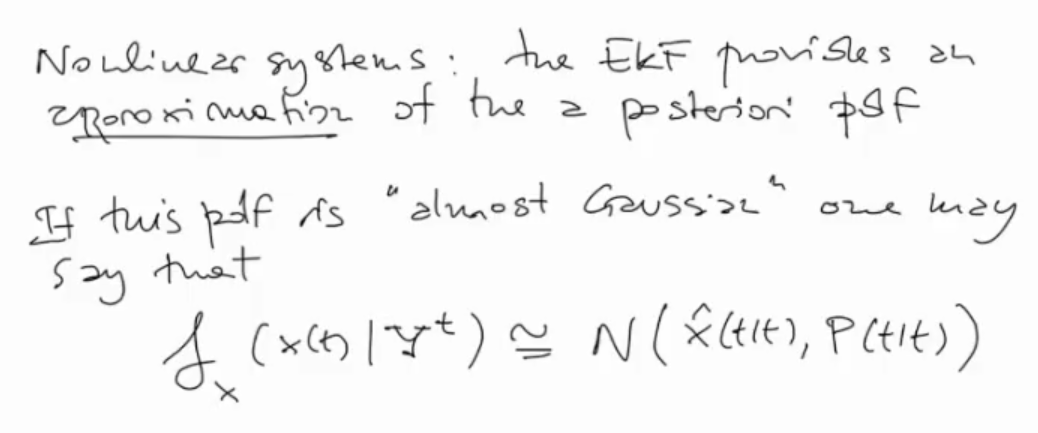 Nonlinear systems: the EKF provides an
approximation of the a posteriori pdf
If this pdf is "almost Gaussian" one may
say that
f_x (x(t) | Y^t) ≅ N(x̂(t|t), P(t|t))